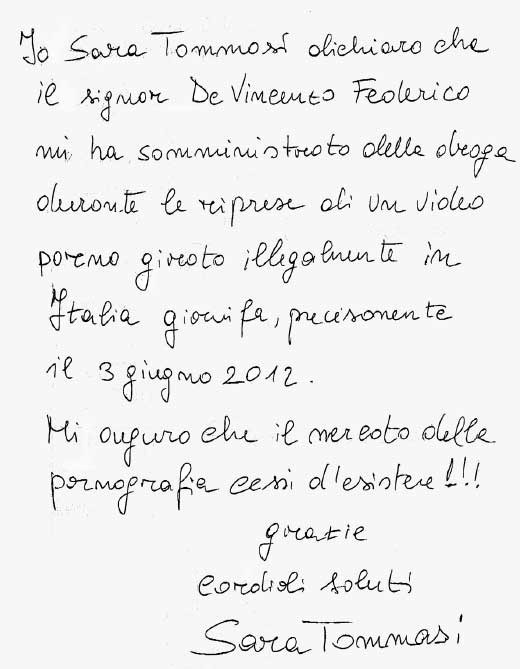 Io Sara Tommasi dichiaro che
il signor De Vincenzo Federico
mi ha somministrato della droga
durante le riprese di un video
porno girato illegalmente in
Italia giorni fa, precisamente
il 3 giugno 2012.
Mi auguro che il mercato della
pornografia cessi d'esistere!!!
grazie
cordiali saluti
Sara Tommasi